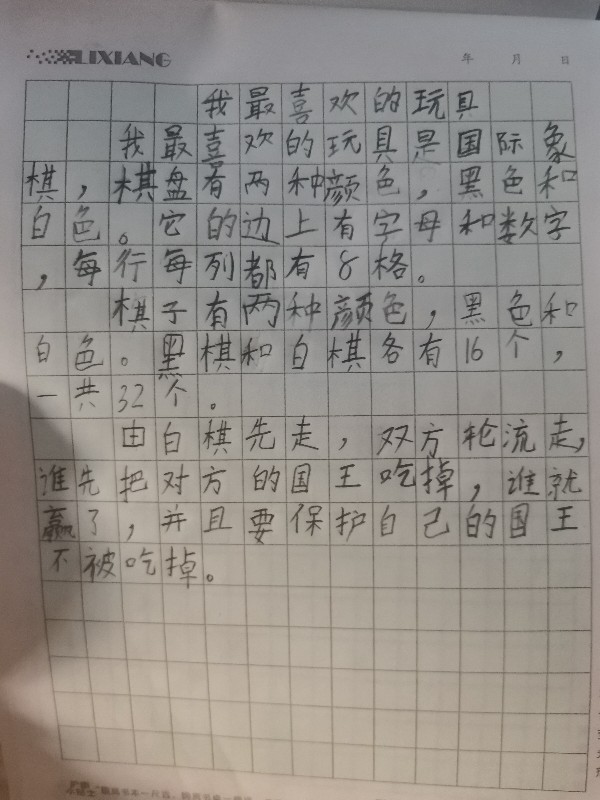 LIXIANG
年 月 日
我最喜欢的玩具
我最喜欢的玩具是国际象
棋，棋盘有两种颜色，黑色和
白色。它的边上有字母和数字
，每行每列都有8格。
棋子有两种颜色，黑色和
白色。黑棋和白棋各有16个，
一共32个。
由白棋先走，双方轮流走，
谁先把对方的国王吃掉，谁就
赢了，并且要保护自己的国王
不被吃掉。